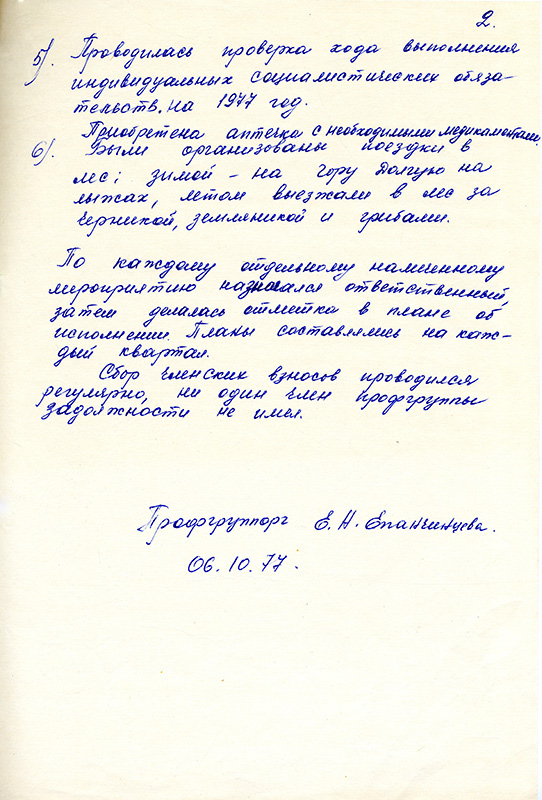 2.
5). Проводилась проверка хода выполнения
индивидуальных социалистических обяза-
тельств на 1977 год.
Приобретена аптечка с необходимыми медикаментами.
6). Были организованы поездки в
лес: зимой - на гору Долгую на
лыжах, летом выезжали в лес за
черникой, земляникой и грибами.
По каждому отдельному намеченному
мероприятию назначался ответственный,
затем делалась отметка в плане об
исполнении. Планы составлялись на каж-
дый квартал.
Сбор членских взносов проводился
регулярно, ни один член профгруппы
задолжности не имел.
Профгруппорг Е.Н. Епанчинцева.
06.10.77.